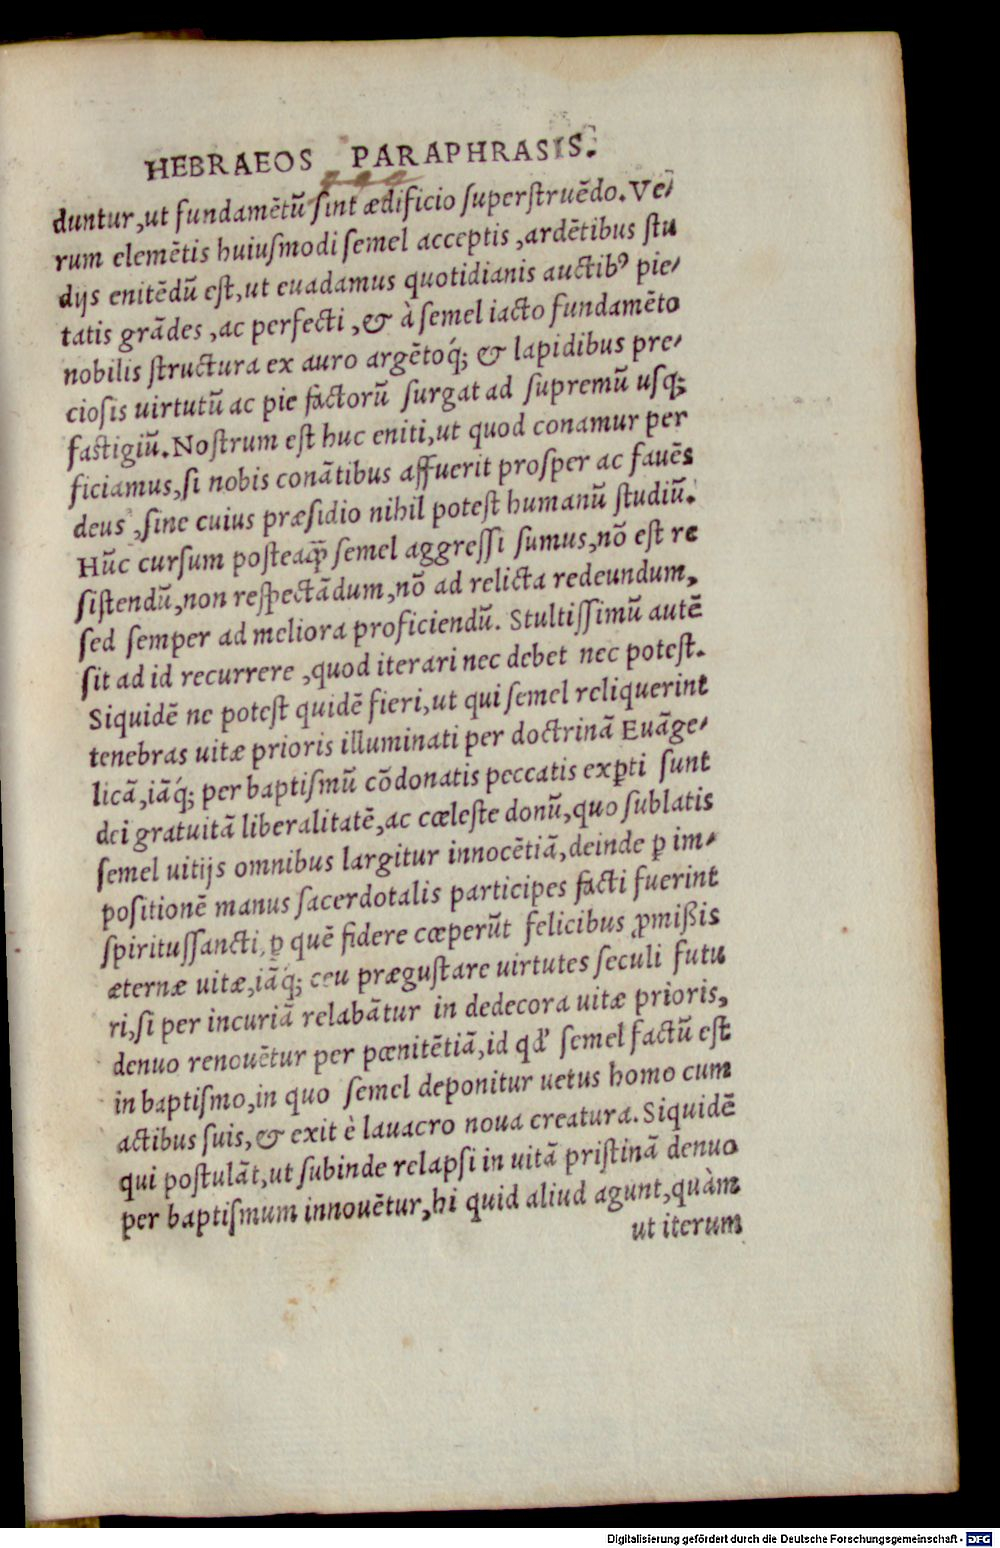 HEBRAEOS PARAPHRASIS.
duntur,ut fundamētū ſint ædificio ſuperſtruēdo. Ve⸗
rum elemētis huiuſmodi ſemel acceptis ,ardētibus ſtu
dijs enitēdū eſt,ut euadamus quotidianis auctibꝰ pie⸗
tatis grādes ,ac perfecti ,& à ſemel iacto fundamēto
nobilis ſtructura ex auro argētoq́; & lapidibus pre⸗
cioſis uirtutū ac pie factorū ſurgat ad ſupremū uſq;
faſtigiū. Noſtrum eſt huc eniti,ut quod conamur per
ficiamus,ſi nobis conātibus affuerit proſper ac fauēs
deus ,ſine cuius præſidio nihil poteſt humanū ſtudiū.
Hūc curſum poſteaq̄̃ ſemel aggreſſi ſumus,nō eſt re
ſiſtendū,non reſpectādum,nō ad relicta redeundum,
ſed ſemper ad meliora proficiendū. Stultiſſimū autē
ſit ad id recurrere ,quod iterari nec debet nec poteſt.
Siquidē ne poteſt quidē fieri,ut qui ſemel reliquerint
tenebras uitæ prioris illuminati per doctrinā Euāge⸗
licā,iāq́; per baptiſmū cōdonatis peccatis exꝑti ſunt
dei gratuitā liberalitatē,ac cœleſte donū,quo ſublatis
ſemel uitijs omnibus largitur innocētiā,deinde ꝑ im⸗
poſitionē manus ſacerdotalis participes facti fuerint
ſpirituſſancti,ꝑ quē fidere cœperūt felicibus ꝓmißis
æternæ uitæ,iāq́; ceu præguſtare uirtutes ſeculi futu
ri,ſi per incuriā relabātur in dedecora uitæ prioris,
denuo renouētur per pœnitētiā,id qd' ſemel factū eſt
in baptiſmo,in quo ſemel deponitur uetus homo cum
actibus ſuis, & exit è lauacro noua creatura. Siquidē
qui poſtulāt,ut ſubinde relapſi in uitā priſtinā denuo
per baptiſmum innouētur,hi quid aliud agunt,quàm
ut iterum
Digitalisierung gefördert durch die Deutsche Forschungsgemeinschaft - DFG